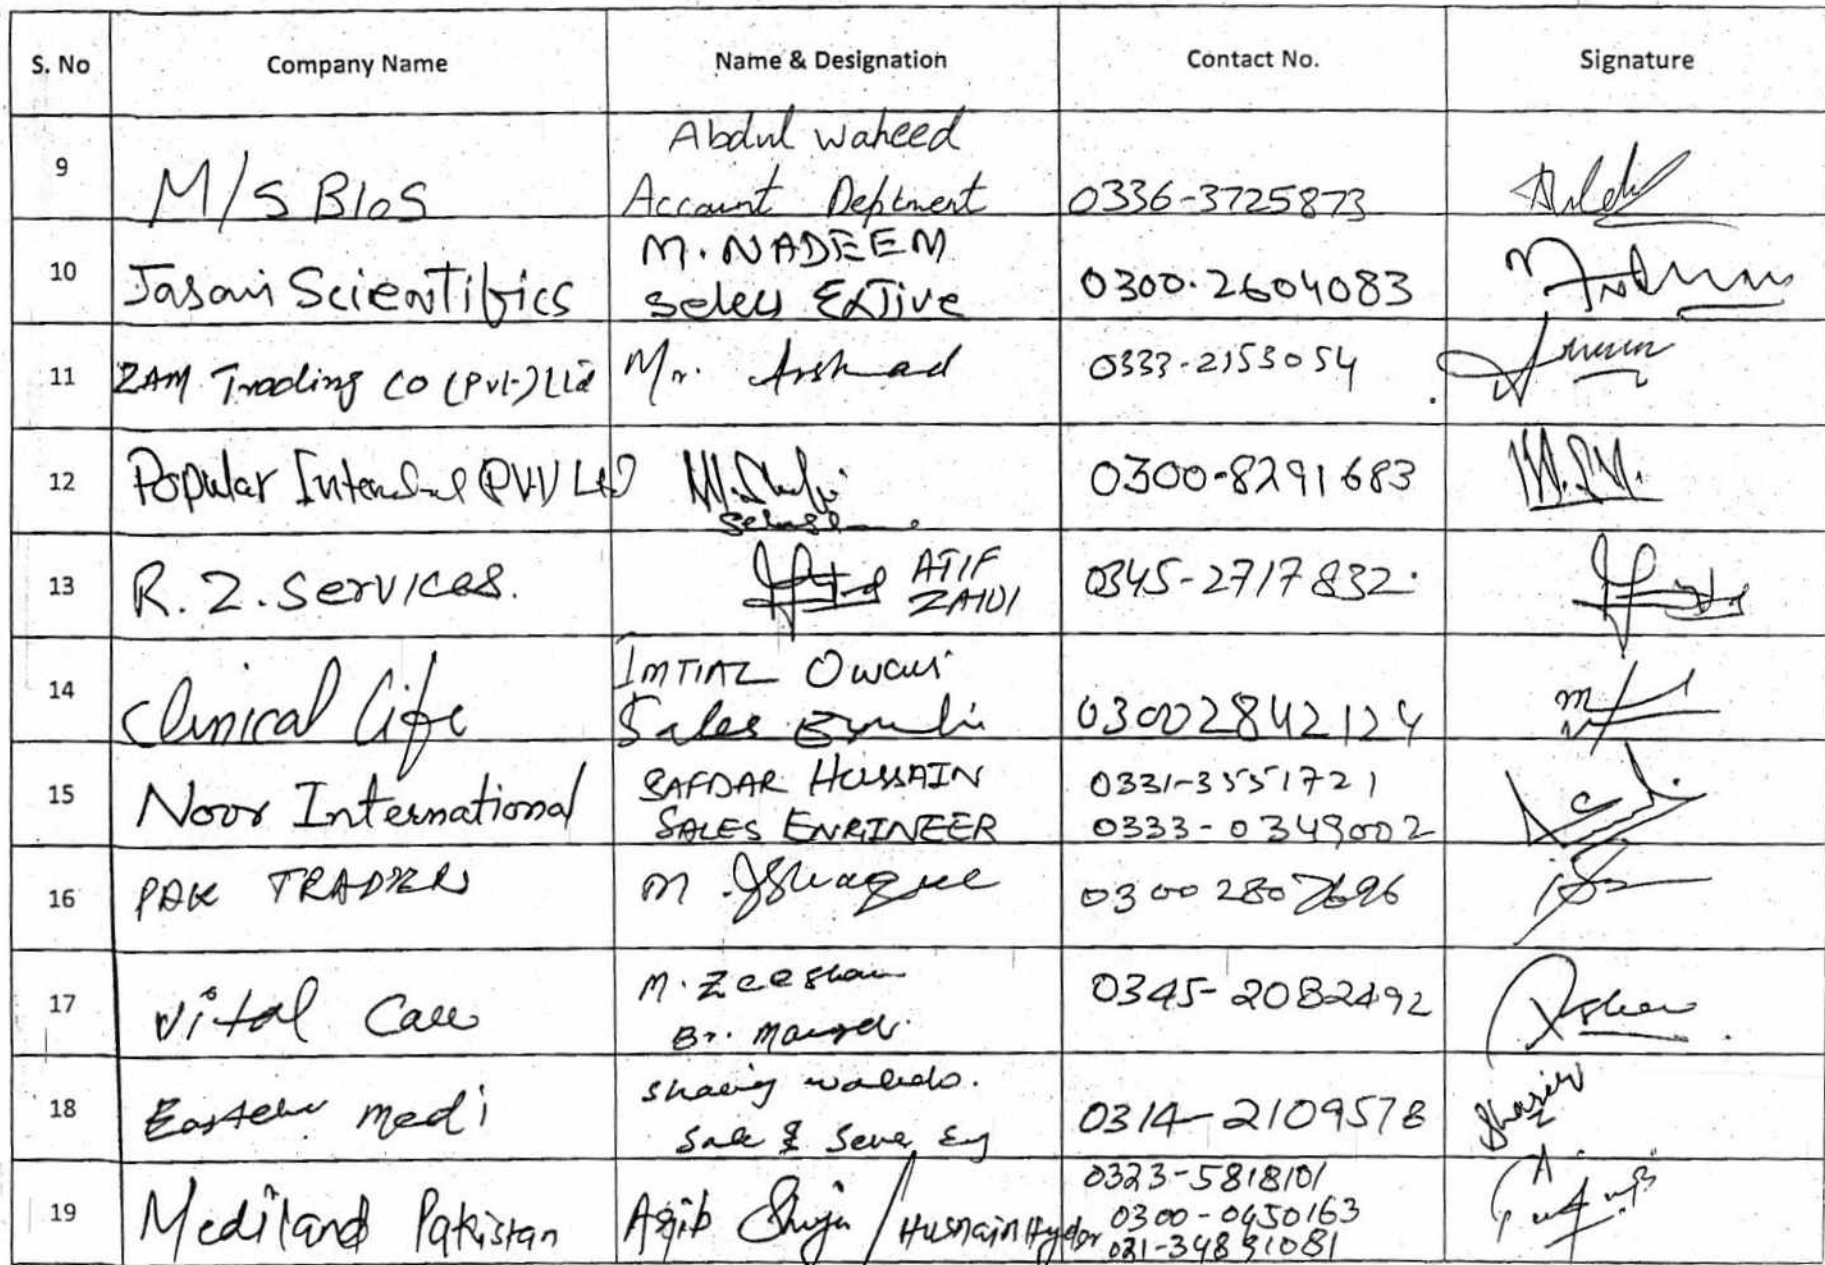 S. No Company Name Name & Designation Contact No. Signature
9 M/S BIOS Abdul Waheed
Account Deptment 0336-3725873
10 Scientifics M. NADEEM
0300-2604083
11 ZAM Trading CO (Pvt) Ltd Mr. Arshad 0333-2153054
12 Popular (Pvt) Ltd 0300-8291683
13 R.Z. Services. ATIF
ZAIDI 0345-2717832
14 Clinical Life IMTIAZ
Sales 03002842124
15 Noor International SAFDAR HUSSAIN 0331-3551721
SALES ENGINEER 0333-0349002
16 PAK TRADERS M. 0300 2807696
17 Vital Care M. Zeeshan
Br. 0345-2082492
18 Eastern Medi
Sale & 0314-2109578
19 Mediland Pakistan Aqib Shuja / Husnain Hyder 0323-5818101
0300-0450163
021-34891081